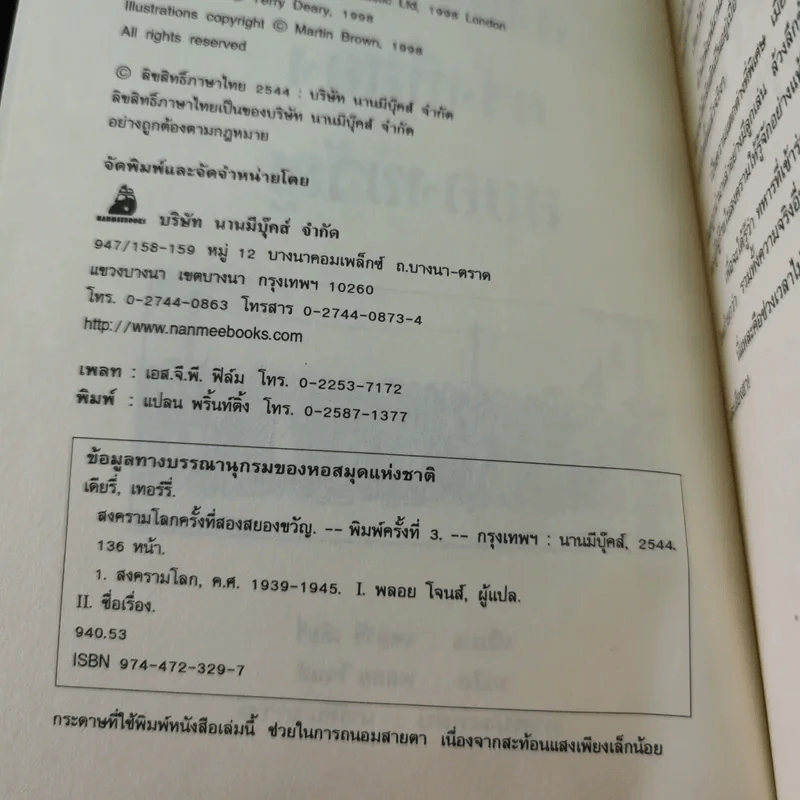 Terry Deary, 1998
Ltd, 1998 London
Illustrations copyright © Martin Brown, 1998
All rights reserved
© ลิขสิทธิ์ภาษาไทย 2544 : บริษัท นานมีบุ๊คส์ จำกัด
ลิขสิทธิ์ภาษาไทยเป็นของบริษัท นานมีบุ๊คส์ จำกัด
อย่างถูกต้องตามกฎหมาย
จัดพิมพ์และจัดจำหน่ายโดย
NANMEEBOOKS
บริษัท นานมีบุ๊คส์ จำกัด
947/158-159 หมู่ 12 บางนาคอมเพล็กซ์ ถ.บางนา-ตราด
แขวงบางนา เขตบางนา กรุงเทพฯ 10260
โทร. 0-2744-0863 โทรสาร 0-2744-0873-4
http://www.nanmeebooks.com
เพลท : เอส.จี.พี. ฟิล์ม โทร. 0-2253-7172
พิมพ์ : แปลน พริ้นท์ติ้ง โทร. 0-2587-1377
ข้อมูลทางบรรณานุกรมของหอสมุดแห่งชาติ
เดียรี่, เทอร์รี่.
สงครามโลกครั้งที่สองสยองขวัญ. -- พิมพ์ครั้งที่ 3. -- กรุงเทพฯ : นานมีบุ๊คส์, 2544.
136 หน้า.
1. สงครามโลก, ค.ศ. 1939-1945. I. พลอย โจนส์, ผู้แปล.
II. ชื่อเรื่อง.
940.53
ISBN 974-472-329-7
กระดาษที่ใช้พิมพ์หนังสือเล่มนี้ ช่วยในการถนอมสายตา เนื่องจากสะท้อนแสงเพียงเล็กน้อย